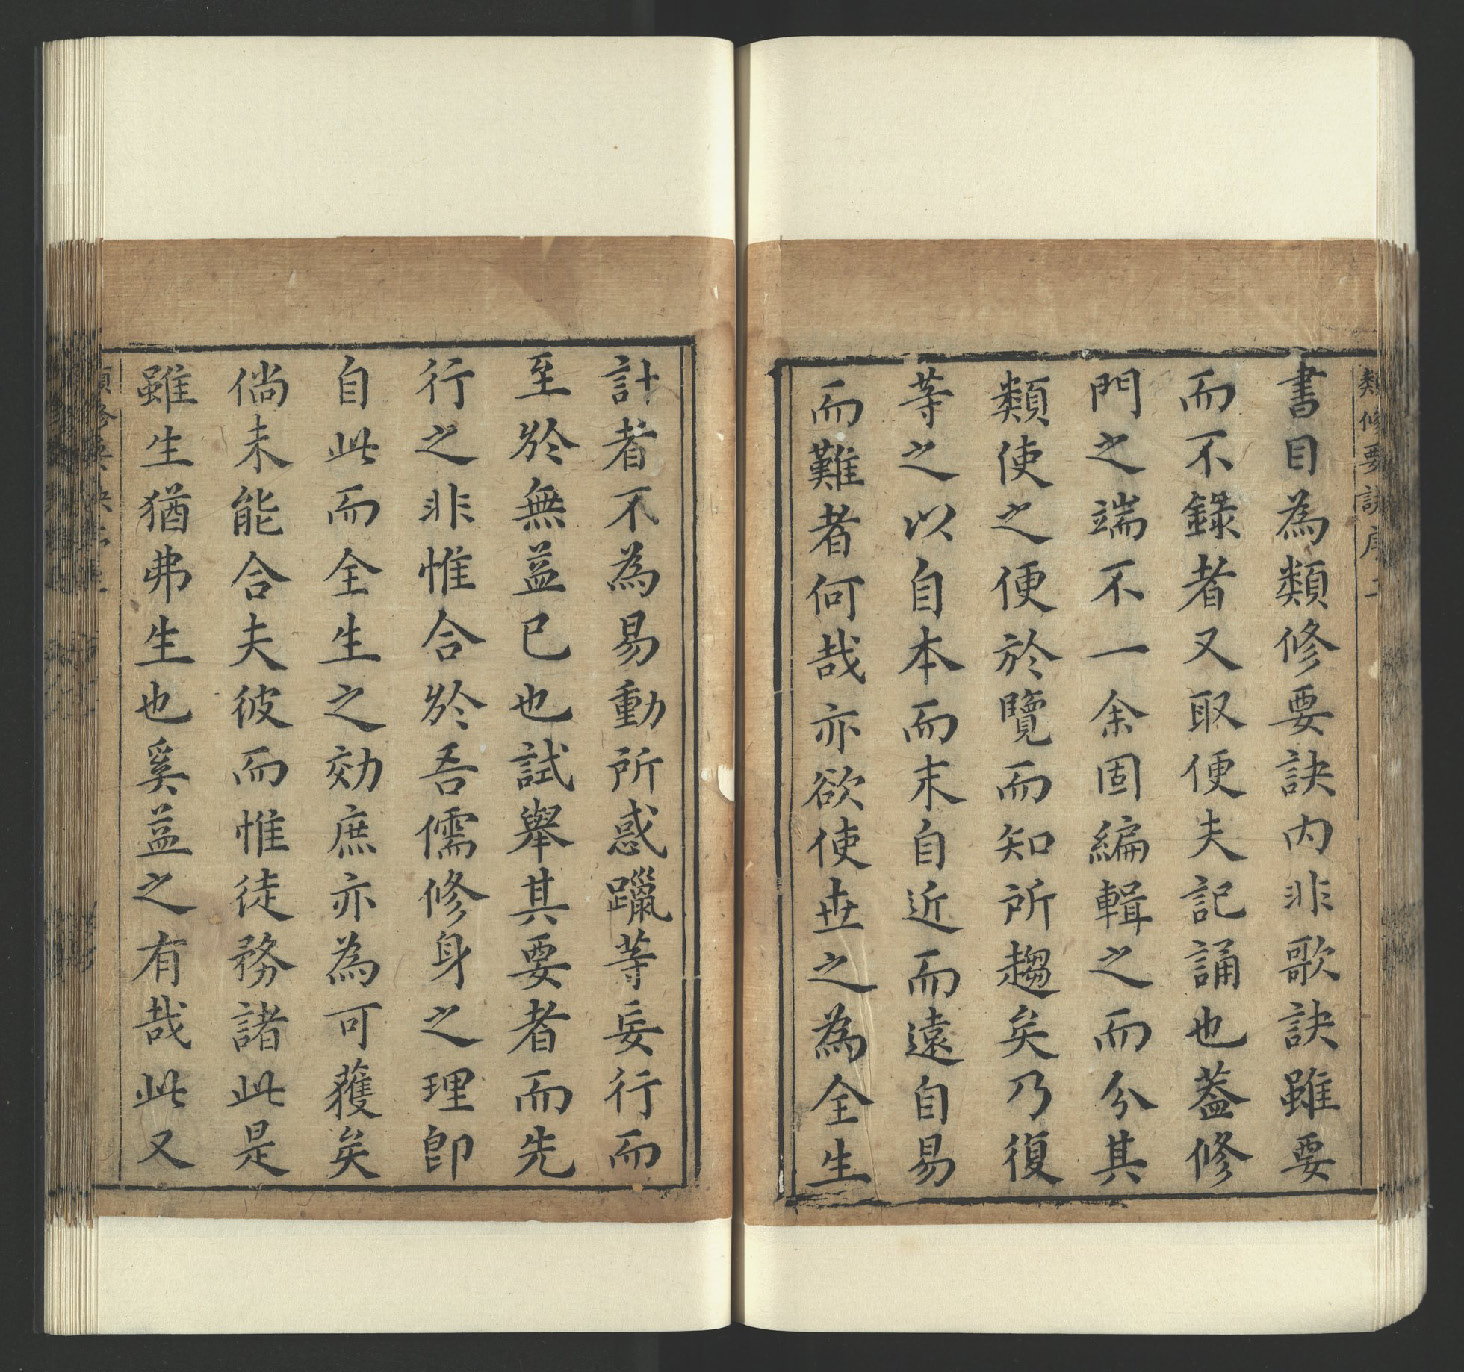 類修要訣序二
書目為類修要訣内非歌訣雖要
而不錄者又取便夫記誦也葢修
門之端不一余固編輯之而分其
類使之便於覽而知所趨矣乃復
等之以自本而末自近而遠自易
而難者何哉亦欲使世之為全生
計者不為易動所惑躐等妄行而
至於無益已也試舉其要者而先
行之非惟合於吾儒修身之理即
自此而全生之効庶亦為可獲矣
倘未能合夫彼而惟徒務諸此是
雖生猶弗生也奚益之有哉此又